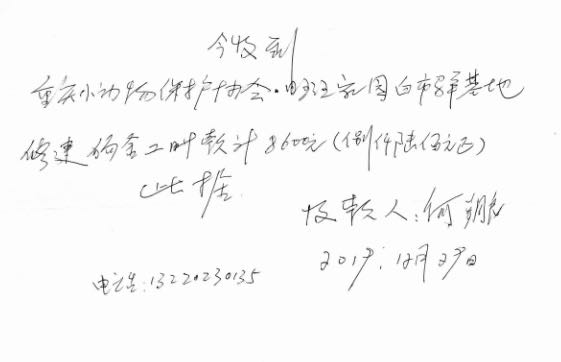 今收到
重庆小动物保护协会·旺旺家园白市驿基地
修建狗舍工时款计8600元(捌仟陆佰元正)
此据
收款人:何鹏
2019.12月29日
电话:13220230135